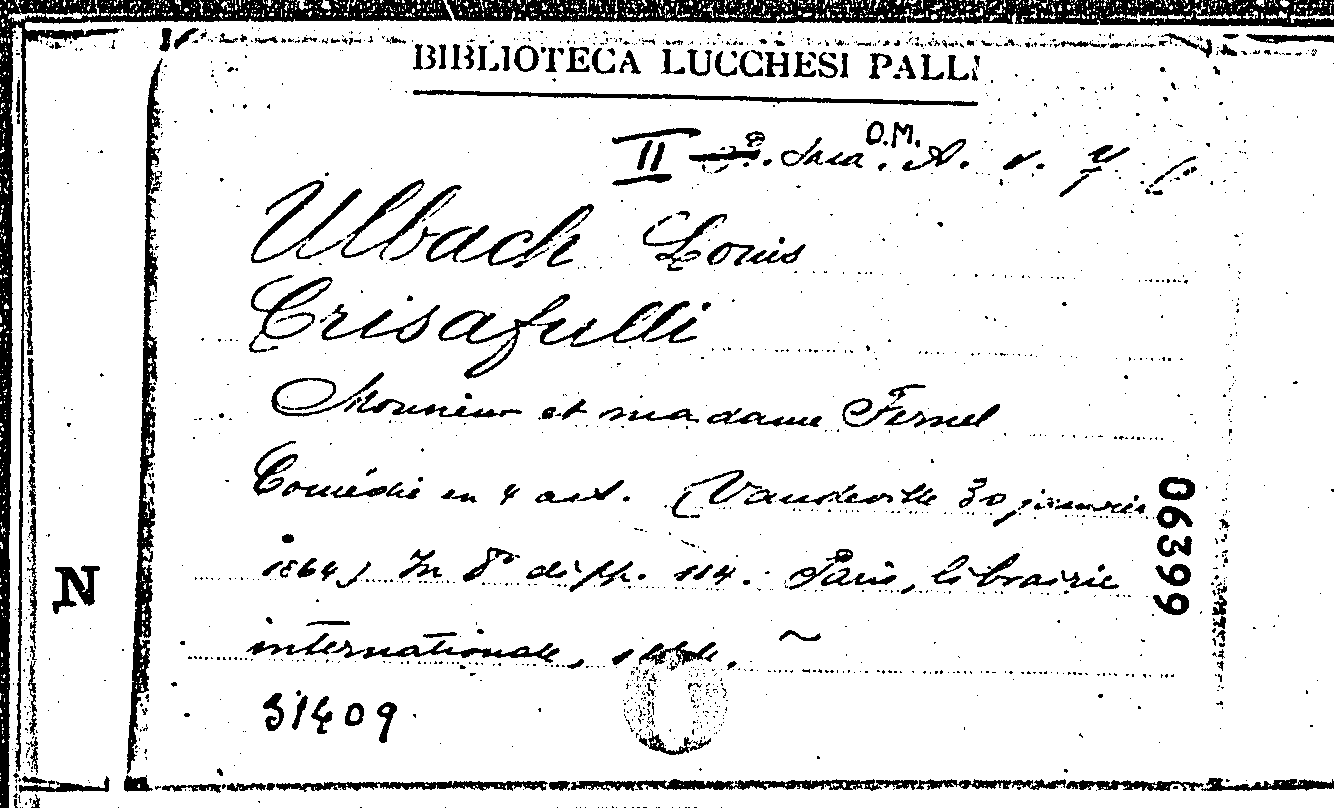 BIBLIOTECA LUCCHESI PALLI
II Sala O.M. A. v. 7
Ulbach Louis
Crisafulli
Monsieur et madame Fernel
Comédie en 4 act. (Vaudeville 30 janvier
1864) In 8° di pp. 114. Paris, librairie
internationale,
31409
66390
N